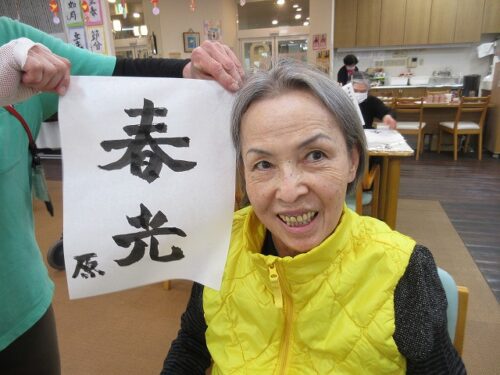 春光
原